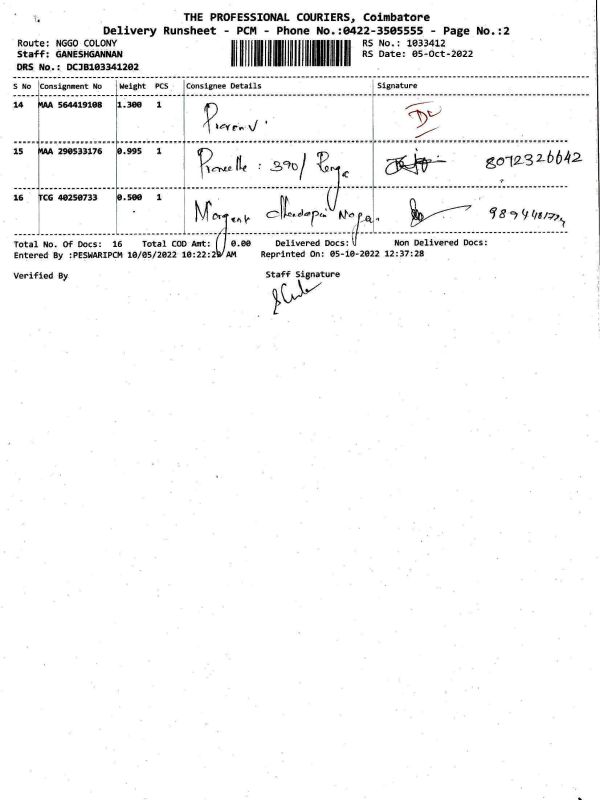 THE PROFESSIONAL COURIERS, Coimbatore
Delivery Runsheet - PCM - Phone No.:0422-3505555 - Page No.:2
Route: NGGO COLONY RS No.: 1033412
Staff: GANESHGANNAN RS Date: 05-Oct-2022
DRS No.: DCJB103341202
S No Consignment No Weight PCS Consignee Details Signature
14 MAA 564419108 1.300 1 Praven V
15 MAA 290533176 0.995 1 : 390/ 8072326642
16 TCG 40250733 0.500 1
Total No. Of Docs: 16 Total COD Amt: 0.00 Delivered Docs: Non Delivered Docs:
Entered By :PESWARIPCM 10/05/2022 10:22:29 AM Reprinted On: 05-10-2022 12:37:28
Verified By Staff Signature